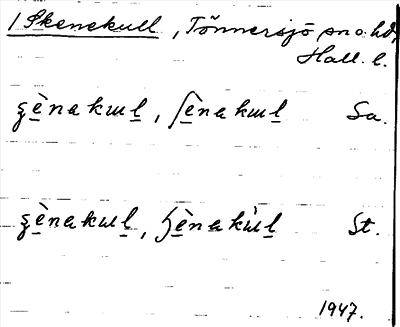 1 Skenekull, Tönnersjö sn o. hd,
Hall. l.
ʂènakɯl, ʃènakɯl Sa.
ʂènakɯl, ɧènakɯ̀l St.
1947.